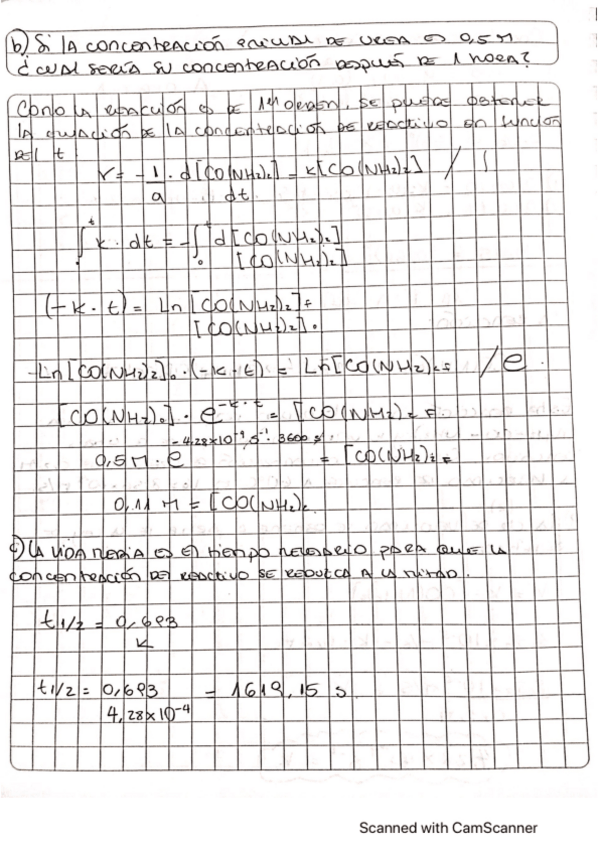 b) Si LA CONCENTRACIÓN INICIAL DE UREA ES 0,5 M
¿CUAL SERÍA SU CONCENTRACIÓN DESPUÉS DE 1 HORA?
COMO LA REACCIÓN ES DE 1er ORDEN, SE PUEDE OBTENER
LA ECUACIÓN DE LA CONCENTRACIÓN DE REACTIVO EN FUNCIÓN
DEL t
V = - 1/a · d[CO(NH₂)₂]/dt = K[CO(NH₂)₂] / ∫
∫₀ᵗ k · dt = -∫₀ᵗ d[CO(NH₂)₂]/[CO(NH₂)₂]
(-K · t) = Ln [CO(NH₂)₂]f/[CO(NH₂)₂]₀
Ln[CO(NH₂)₂]₀ · (-K · t) = Ln[CO(NH₂)₂f / e
[CO(NH₂)₀] · e^-K·t = [CO(NH₂)₂ f
0,5 M · e^-4,28x10⁻⁴ s⁻¹ · 3600 s = [CO(NH₂)₂ f
0,11 M = [CO(NH₂)₂
c) LA VIDA MEDIA ES El TIEMPO NECESARIO PARA QUE LA
CONCENTRACIÓN DEL REACTIVO SE REDUZCA A LA MITAD.
t1/2 = 0,693/K
t1/2 = 0,693/4,28x10⁻⁴ = 1619,15 s
Scanned with CamScanner